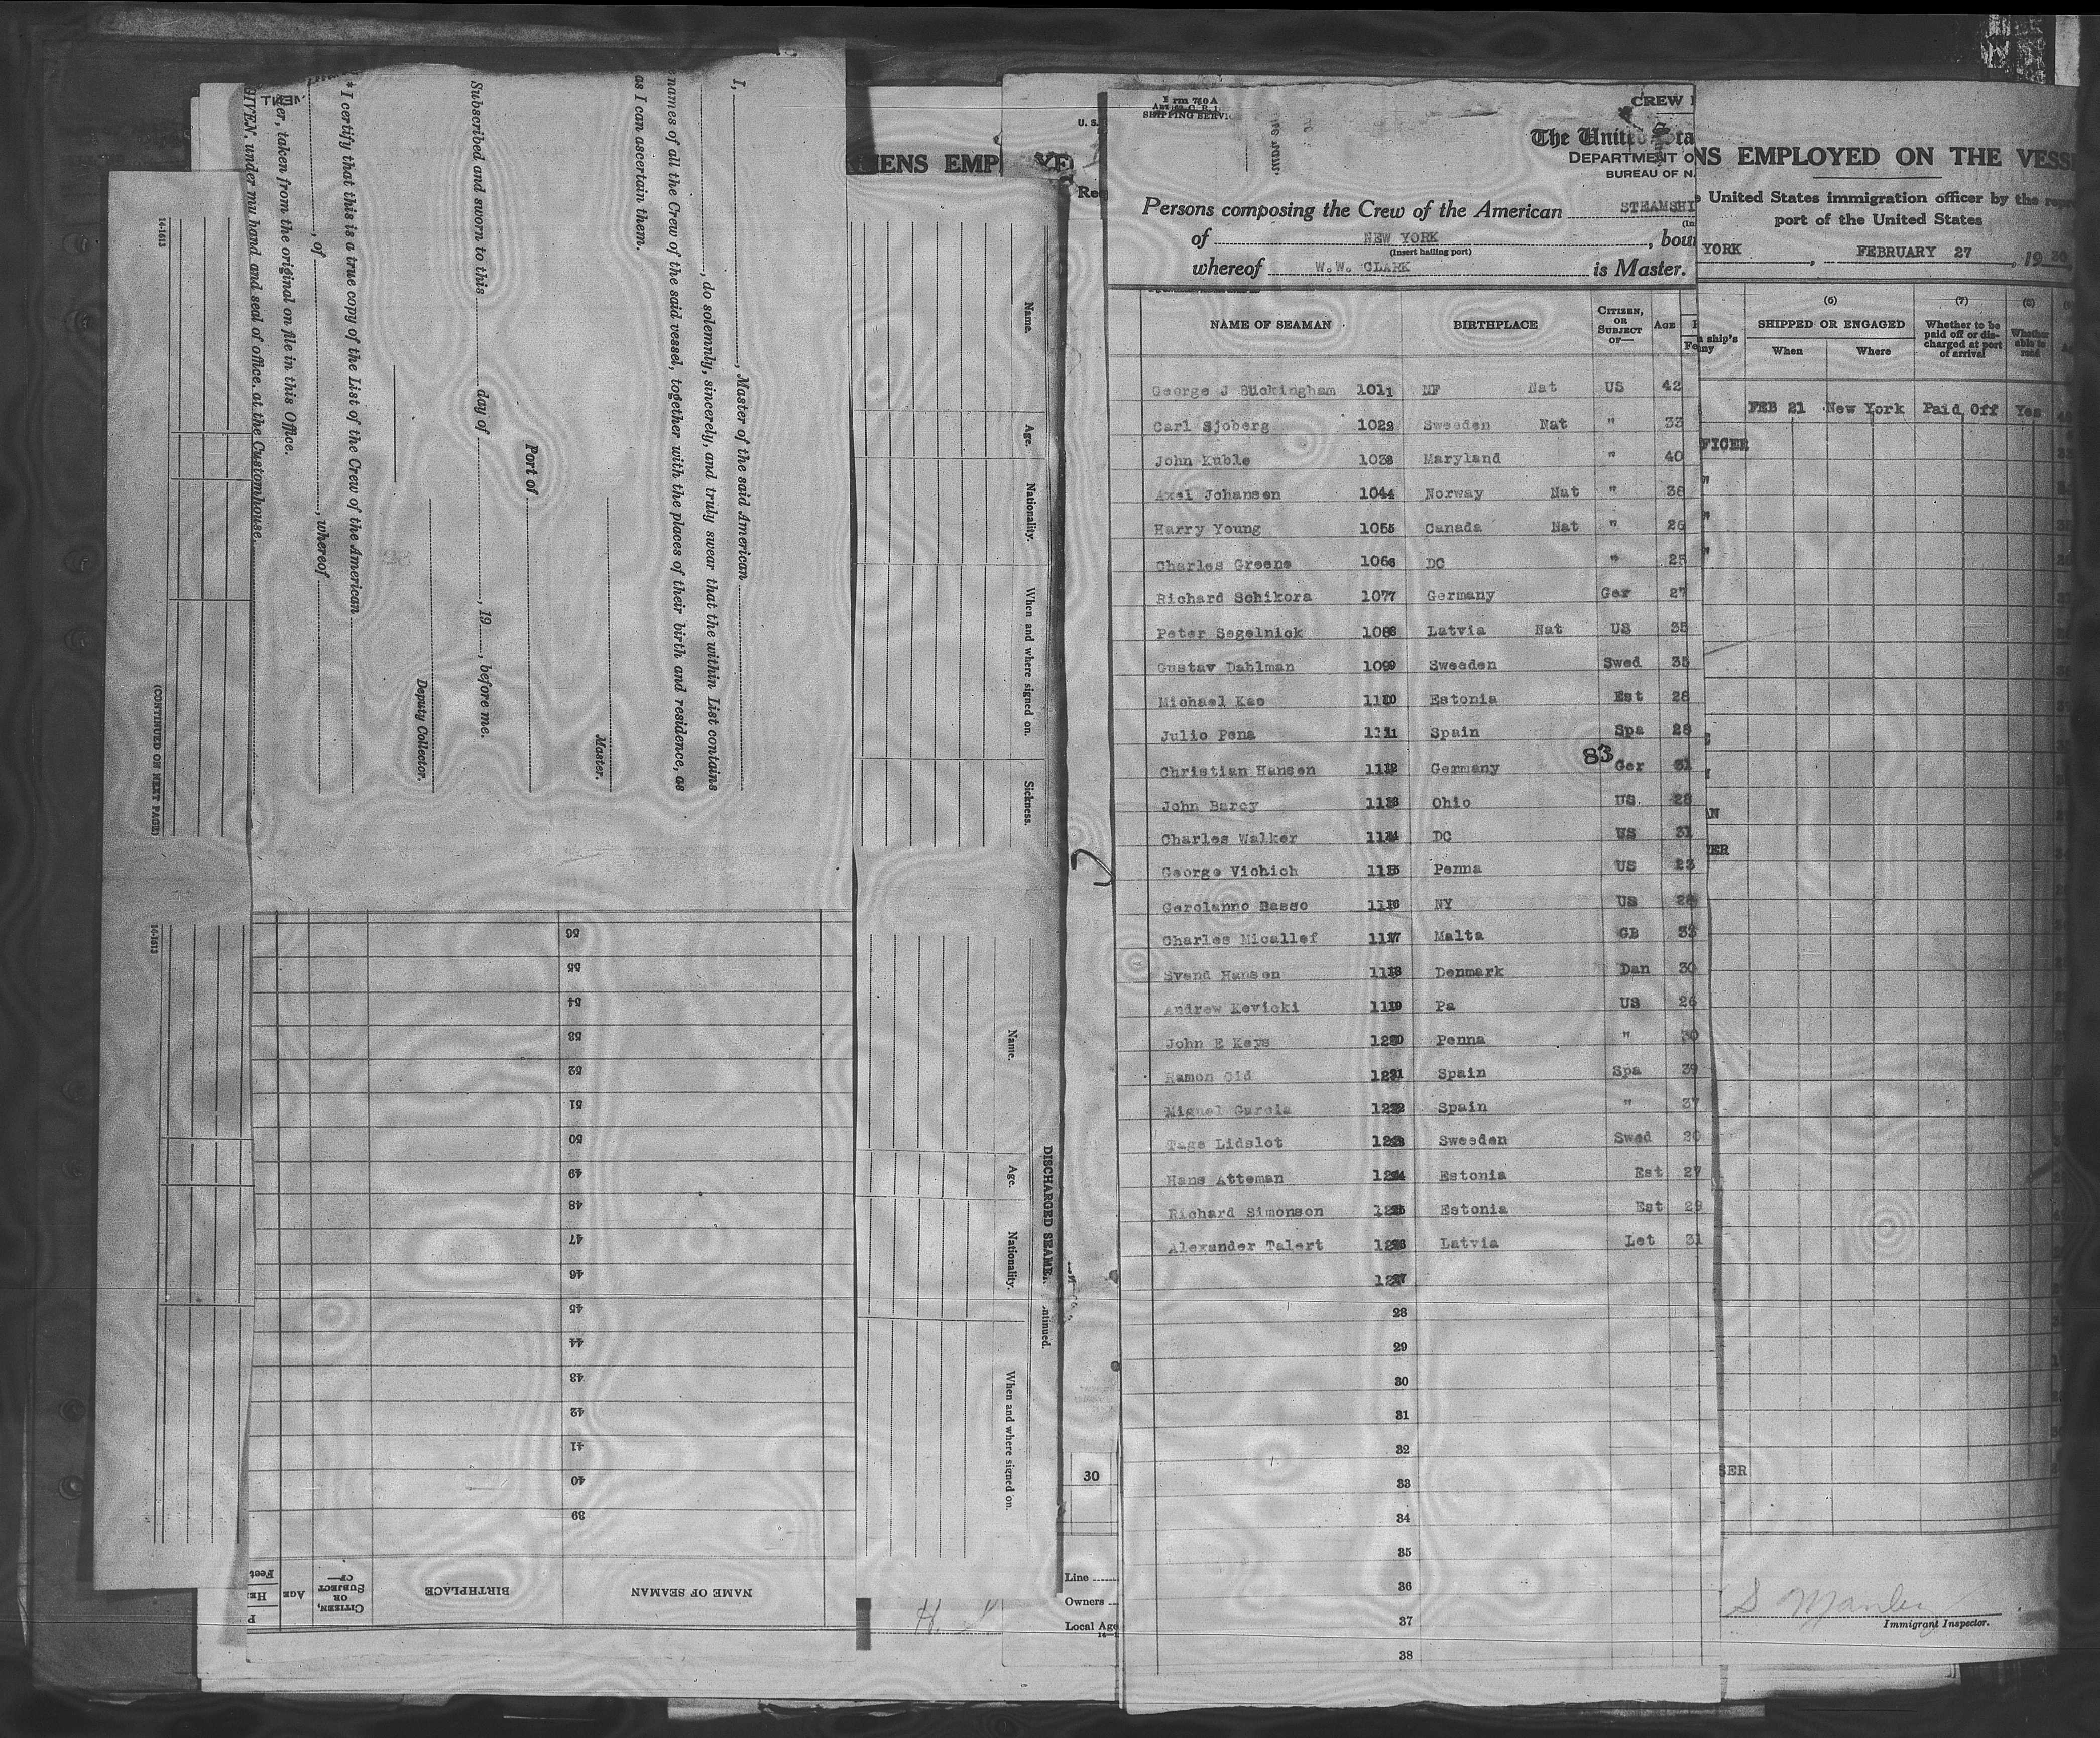 I, , Master of the said American
, do solemnly, sincerely, and truly swear that the within List contains
names of all the Crew of the said vessel, together with the places of their birth and residence, as
as I can ascertain them.
Master.
Port of
Subscribed and sworn to this day of , 19 , before me.
Deputy Collector.
* I certify that this is a true copy of the List of the Crew of the American
, of , whereof
er, taken from the original on file in this Office.
GIVEN under my hand and seal of office, at the Customhouse,
14-1613
(CONTINUED ON NEXT PAGE)
14-1613
56
55
54
53
52
51
50
49
48
47
46
45
44
43
42
41
40
39
NAME OF SEAMAN
BIRTHPLACE
CITIZEN, OR SUBJECT OF—
AGE
Feet
U. S.
ENS EMP
Name.
Age.
Nationality.
When and where signed on.
Sickness.
DISCHARGED SEAME
ntinued.
Name.
Age.
Nationality.
When and where signed on.
30
Line
Owners
Local Age
SHIPPING SERVI
CREW
The United Sta
DEPARTMENT O
BUREAU OF N
Persons composing the Crew of the American STEAMSHI
of NEW YORK , boun
(Insert hailing port)
whereof W.W. CLARK is Master.
NAME OF SEAMAN BIRTHPLACE CITIZEN, OR SUBJECT OF— AGE
George J Buckingham 1011 NF Nat US 42
Carl Sjoberg 1022 Sweeden Nat " 33
John Kuble 1033 Maryland " 40
Axel Johansen 1044 Norway Nat " 38
Harry Young 1055 Canada Nat " 26
Charles Greene 1066 DC " 25
Richard Schikora 1077 Germany Ger 27
Peter Segelnick 1088 Latvia Nat US 35
Gustav Dahlman 1099 Sweeden Swed 35
Michael Kao 1110 Estonia Est 28
Julio Pena 1111 Spain Spa 28
83
Christian Hansen 1112 Germany Ger 31
John Barcy 1113 Ohio US. 28
Charles Walker 1114 DC US 31
George Vichich 1115 Penna US 23
Gerolanno Basso 1116 NY US
Charles Micallef 1117 Malta GB 33
Svend Hansen 1118 Denmark Dan 30
Andrew Kevicki 1119 Pa US 26
John E Keys 1220 Penna " 30
Ramon Cid 1221 Spain Spa 39
Miguel Garcia 1222 Spain " 37
Tage Lidslot 1223 Sweeden Swed 20
Hans Atteman 1224 Estonia Est 27
Richard Simonson 1225 Estonia Est 29
Alexander Talert 1226 Latvia Let 31
1227
28
29
30
31
32
33
34
35
36
37
38
NS EMPLOYED ON THE VESS
United States immigration officer by the repre
port of the United States
YORK , FEBRUARY 27 , 1930
ship's
ny
(6) (7) (8)
SHIPPED OR ENGAGED
When Where
Whether to be paid off or discharged at port of arrival
Whether able to read
FEB 21 New York Paid Off Yes
FICER
"
"
"
AN
ER
SER
Immigrant Inspector.